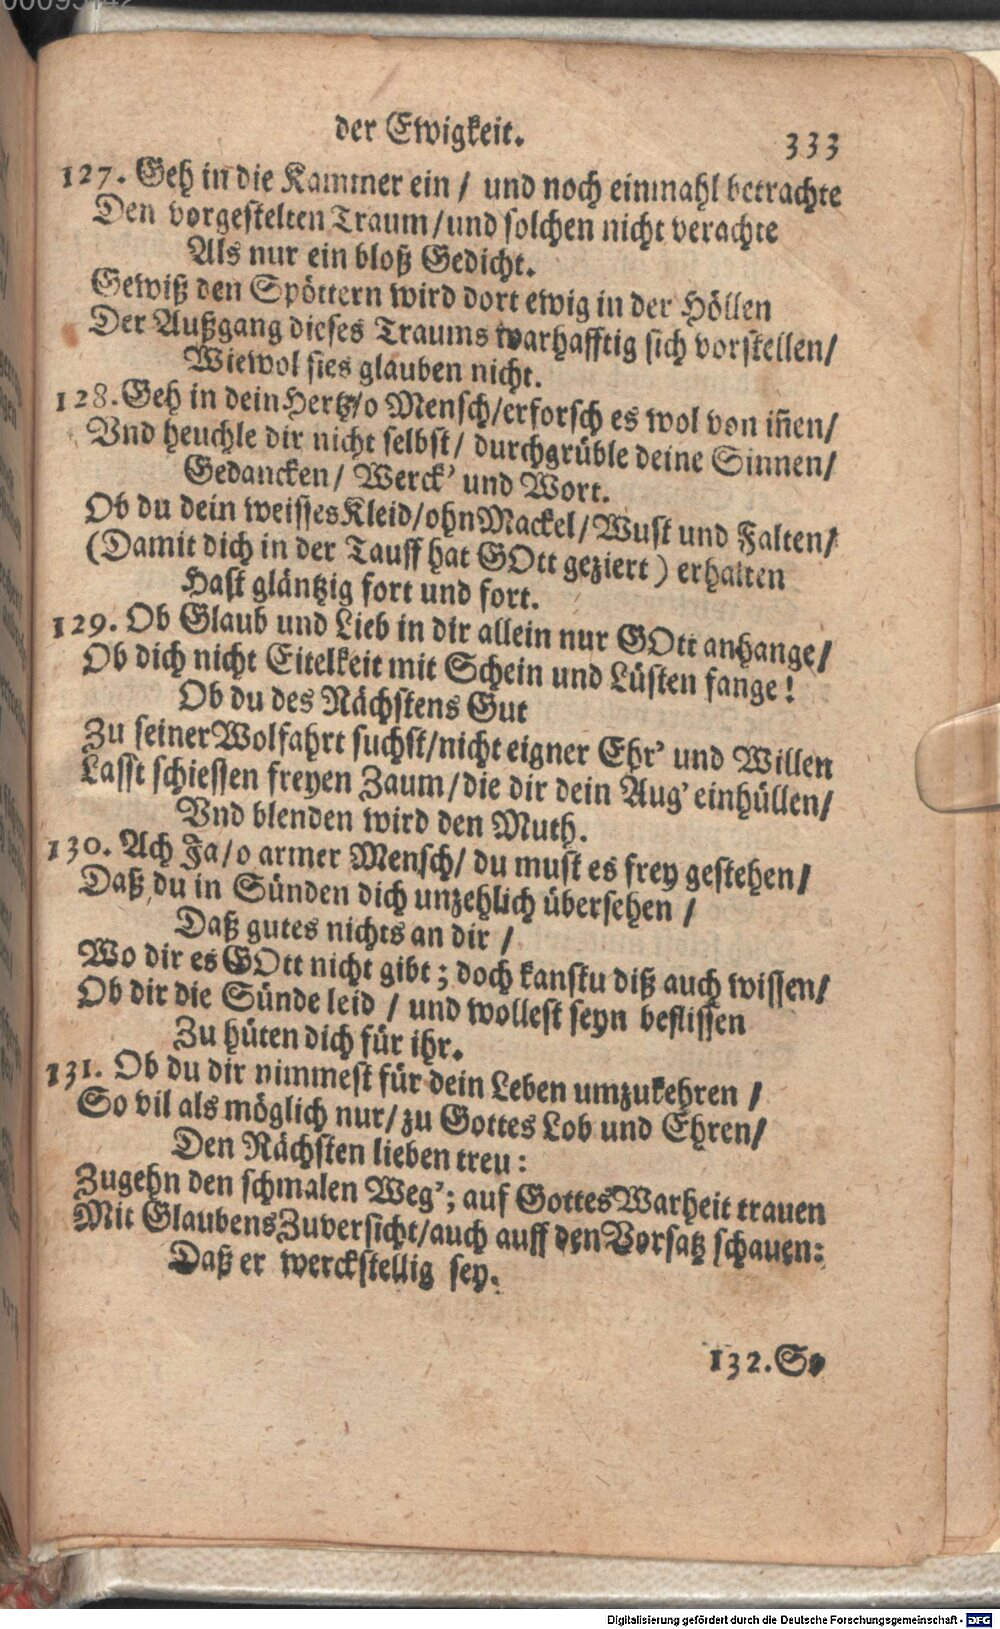 der Ewigkeit. 333
127. Geh in die Kammer ein / und noch einmahl betrachte
Den vorgestelten Traum/und solchen nicht verachte
Als nur ein bloß Gedicht.
Gewiß den Spöttern wird dort ewig in der Höllen
Der Außgang dieses Traums warhafftig sich vorstellen/
Wiewol sies glauben nicht.
128. Geh in dein Hertz/o Mensch/erforsch es wol von iñen/
Vnd heuchle dir nicht selbst/ durchgrüble deine Sinnen/
Gedancken/ Werck' und Wort.
Ob du dein weisses Kleid/ohn Mackel/Wust und Falten/
(Damit dich in der Tauff hat GOtt geziert) erhalten
Hast gläntzig fort und fort.
129. Ob Glaub und Lieb in dir allein nur GOtt anhange/
Ob dich nicht Eitelkeit mit Schein und Lüsten fange!
Ob du des Nächstens Gut
Zu seiner Wolfahrt suchst/nicht eigner Ehr' und Willen
Lasst schiessen freyen Zaum/die dir dein Aug' einhüllen/
Vnd blenden wird den Muth.
130. Ach Ja/o armer Mensch/ du must es frey gestehen/
Daß du in Sünden dich unzehlich übersehen /
Daß gutes nichts an dir /
Wo dir es GOtt nicht gibt; doch kanstu diß auch wissen/
Ob dir die Sünde leid / und wollest seyn beflissen
Zu hüten dich für ihr.
131. Ob du dir nimmest für dein Leben umzukehren /
So vil als möglich nur/zu Gottes Lob und Ehren/
Den Nächsten lieben treu:
Zugehn den schmalen Weg'; auf Gottes Warheit trauen
Mit Glaubens Zuversicht/auch auff den Vorsatz schauen:
Daß er werckstellig sey.
132. So
Digitalisierung gefördert durch die Deutsche Forschungsgemeinschaft - DFG